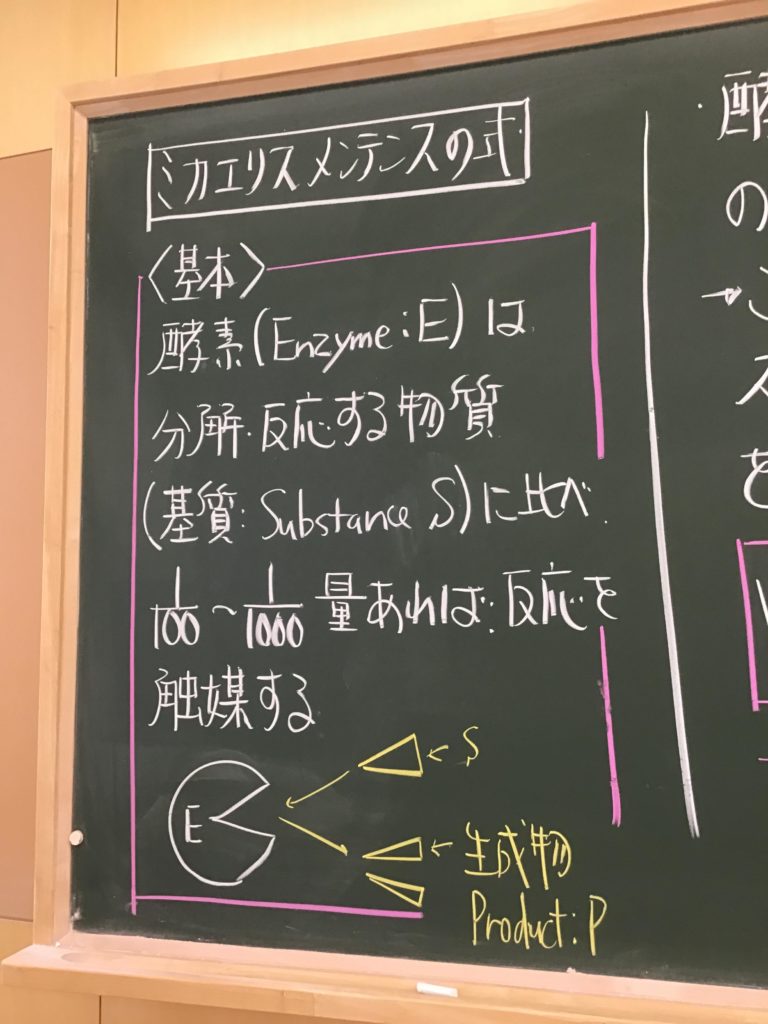 ミカエリスメンテンスの式
〈基本〉
酵素(Enzyme:E)は
分解・反応する物質
(基質:Substance S)に比べ
1/100～1/1000量あれば反応を
触媒する
E
S
生成物
Product:P
酵
の
→こ
ス
を